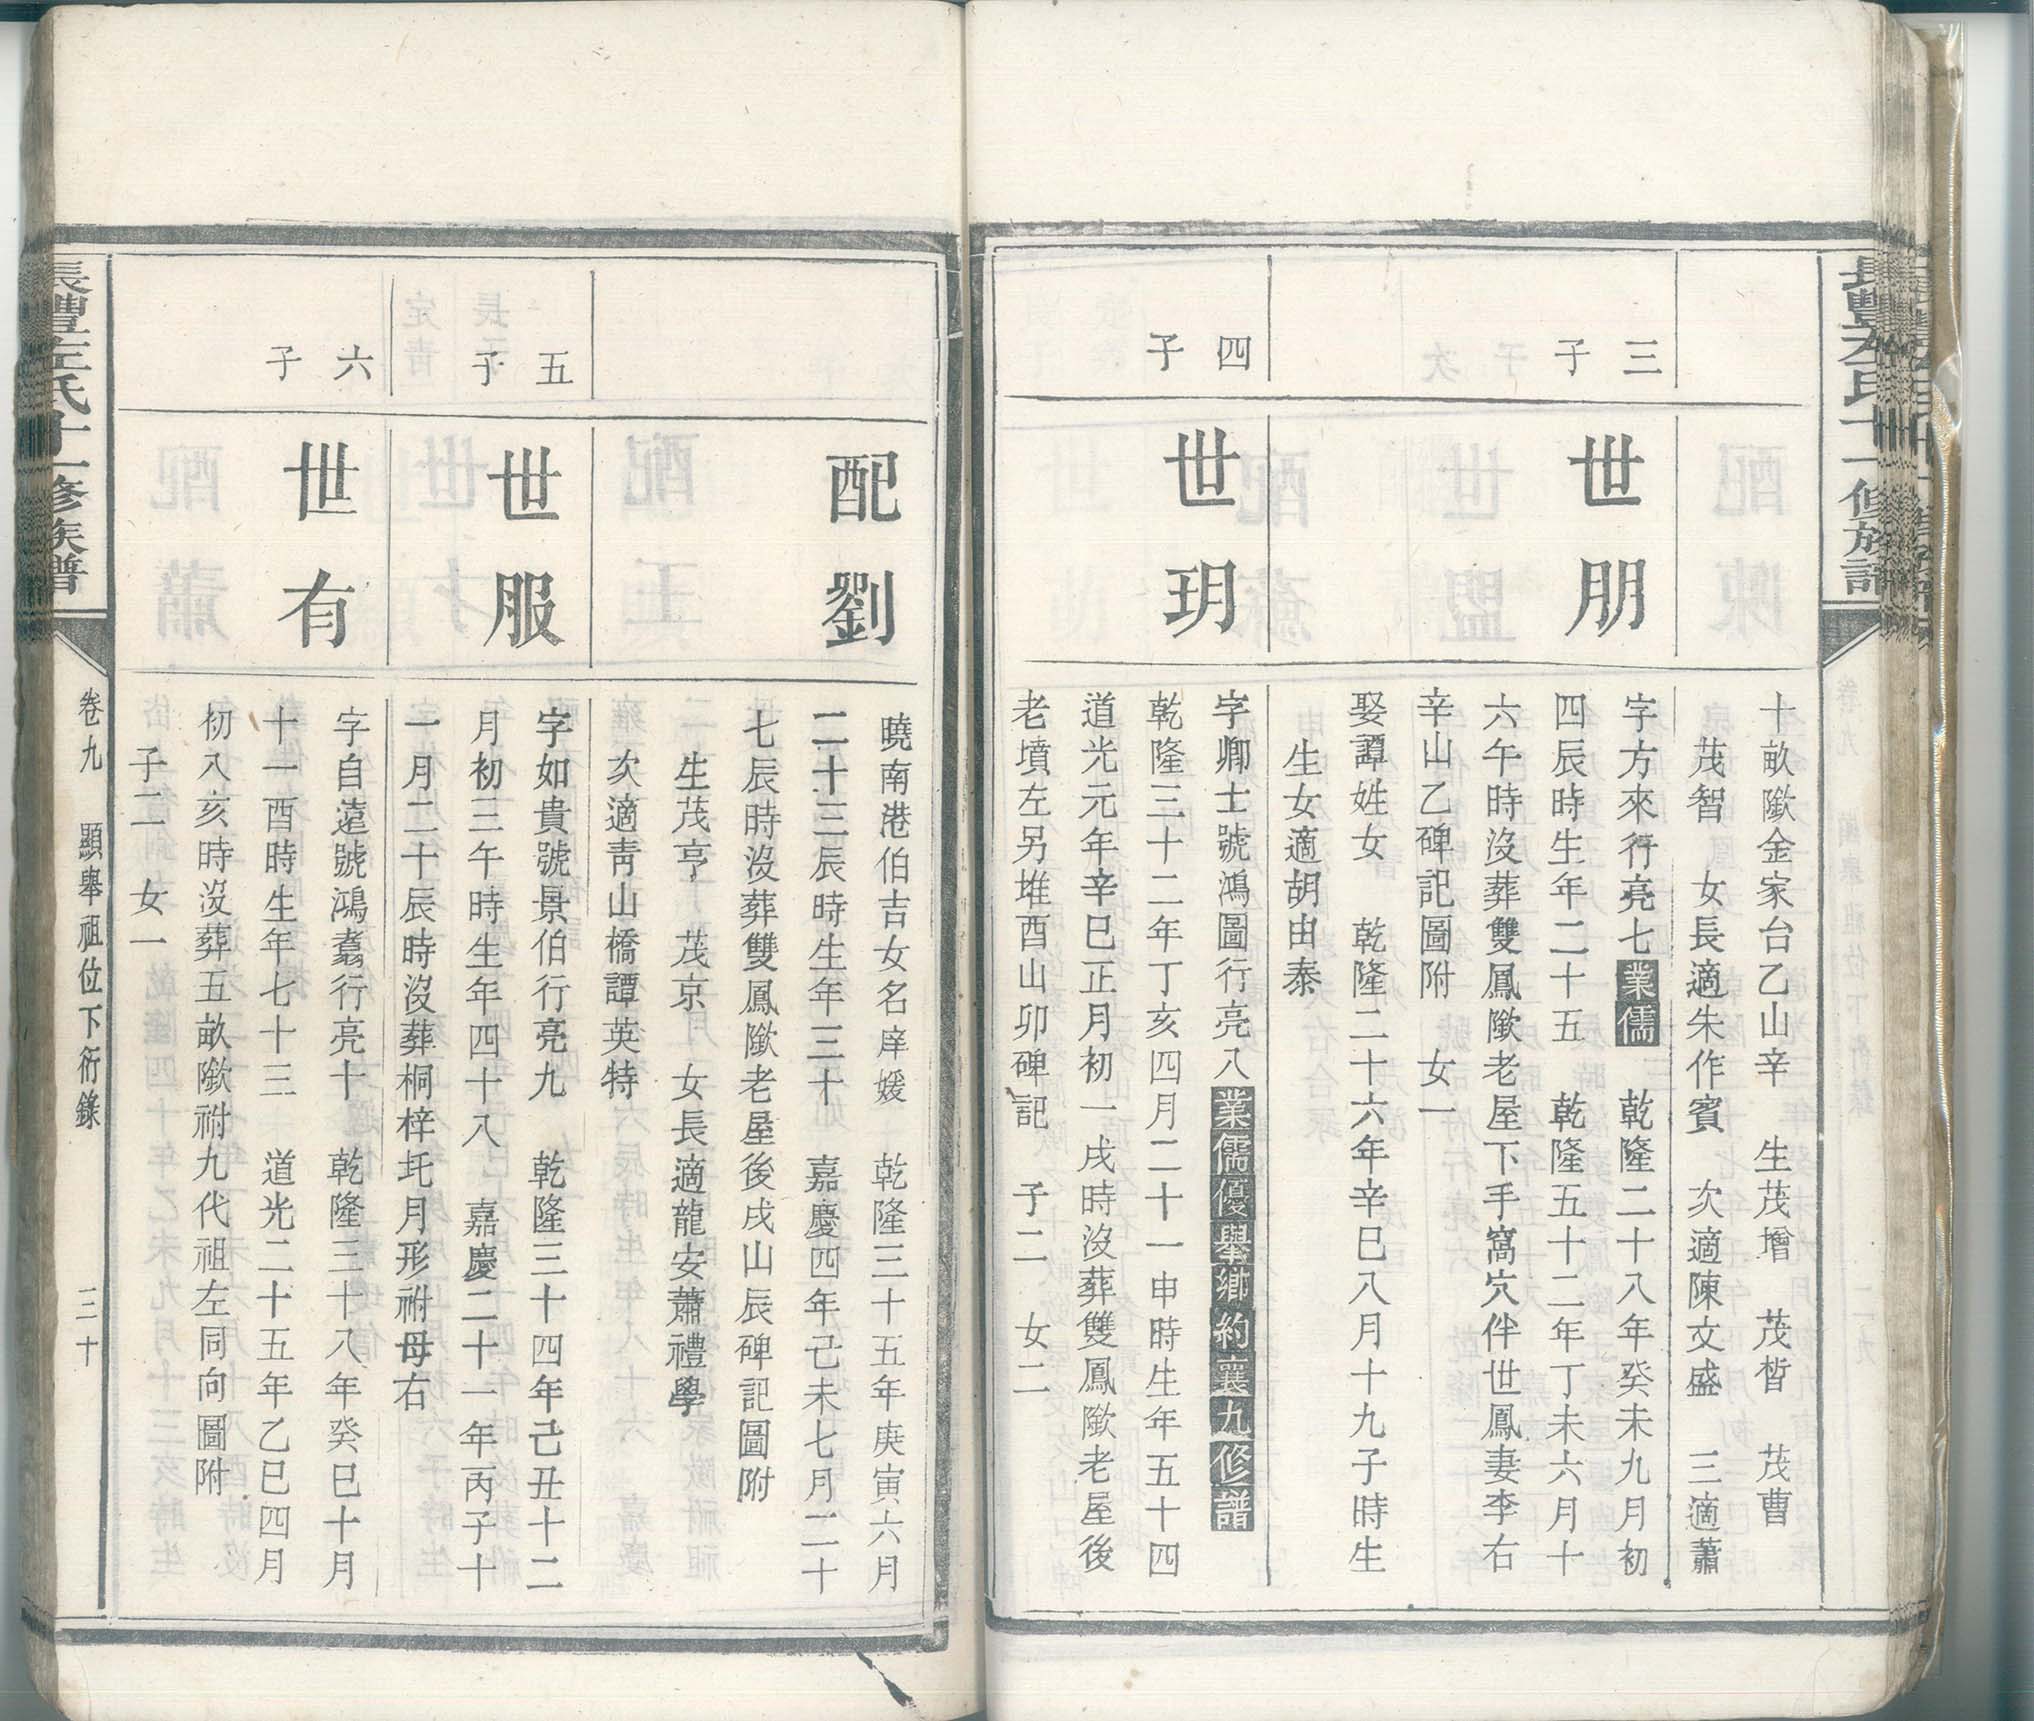 十畝墩金家台乙山辛 生茂增 茂晳 茂曹
茂智 女長適朱作賓 次適陳文盛 三適蕭
三子
世朋
字方來行亮七業儒 乾隆二十八年癸未九月初
四辰時生年二十五 乾隆五十二年丁未六月十
六午時沒葬雙鳳墩老屋下手窩穴伴世鳳妻李右
辛山乙碑記圖附 女一
娶譚姓女 乾隆二十六年辛巳八月十九子時生
生女適胡由泰
四子
世玥
字卿士號鴻圖行亮八業儒優舉鄉約襄九修譜
乾隆三十二年丁亥四月二十一申時生年五十四
道光元年辛巳正月初一戌時沒葬雙鳳墩老屋後
老墳左另堆酉山卯碑記 子二 女二
配劉
曉南港伯吉女名庠媛 乾隆三十五年庚寅六月
二十三辰時生年三十 嘉慶四年己未七月二十
七辰時沒葬雙鳳墩老屋後戌山辰碑記圖附
生茂亨 茂京 女長適龍安蕭禮學
次適靑山橋譚英特
五子
世服
字如貴號景伯行亮九 乾隆三十四年己丑十二
月初三午時生年四十八 嘉慶二十一年丙子十
一月二十辰時沒葬桐梓圫月形祔母右
六子
世有
字自遠號鴻翥行亮十 乾隆三十八年癸巳十月
十一酉時生年七十三 道光二十五年乙巳四月
初八亥時沒葬五畝墩祔九代祖左同向圖附
子二 女一
長豐左氏十一修族譜
卷九 顯舉祖位下衍錄 三十